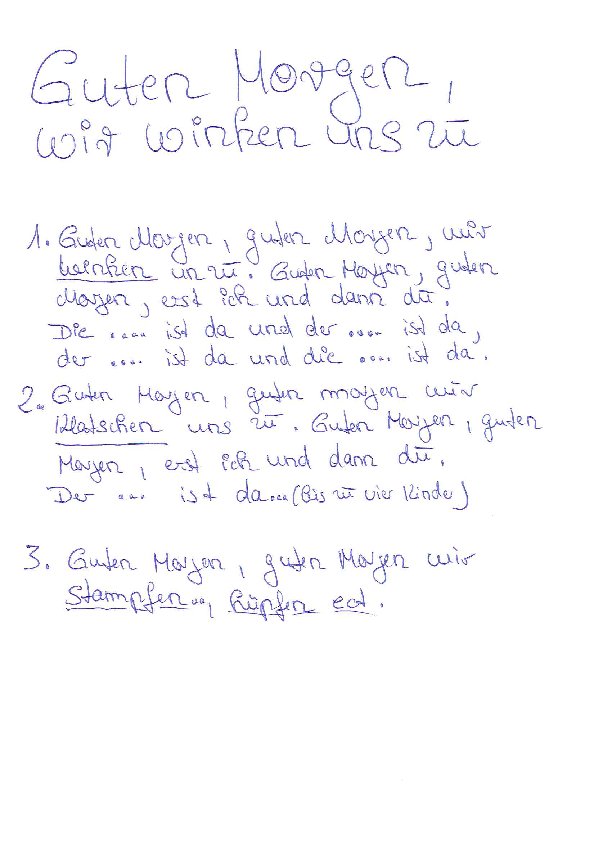 Guten Morgen,
wir winken uns zu
1. Guten Morgen, guten Morgen, wir
winken un zu. Guten Morgen, guten
Morgen, erst ich und dann du.
Die .... ist da und der .... ist da,
der .... ist da und die .... ist da.
2. Guten Morgen, guten morgen wir
Klatschen uns zu. Guten Morgen, guten
Morgen, erst ich und dann du.
Der .... ist da... (Bis zu vier Kinde)
3. Guten Morgen, guten Morgen wir
Stampfen..., hüpfen ect.